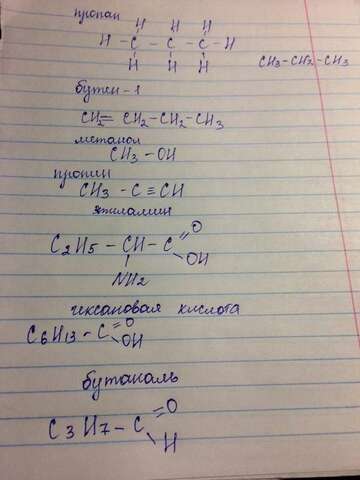 пропан
H H H
H - C - C - C - H
H H H
CH3-CH2-CH3
бутен-1
CH2= CH2-CH2-CH3
метанол
CH3-OH
пропин
CH3 - C ≡ CH
этиламин
C2H5 - CH - C =O OH
NH2
гексановая кислота
C6H13 - C =O OH
бутаналь
C3H7 - C =O H